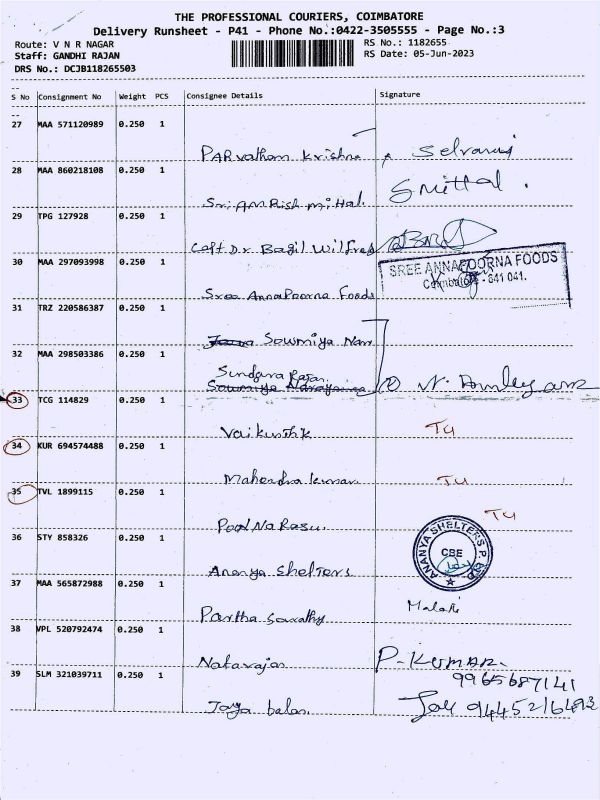 THE PROFESSIONAL COURIERS, COIMBATORE
Delivery Runsheet - P41 - Phone No.:0422-3505555 - Page No.:3
Route: V N R NAGAR RS No.: 1182655
Staff: GANDHI RAJAN RS Date: 05-Jun-2023
DRS No.: DCJB118265503
S No Consignment No Weight PCS Consignee Details Signature
27 MAA 571120989 0.250 1
Parvatham Krishna Selvarani
28 MAA 860218108 0.250 1
Sri AMRish mittal Smittal.
29 TPG 127928 0.250 1
Capt Dr Bagil Wilfred
30 MAA 297093998 0.250 1
SREE ANNAPOORNA FOODS
Coimbatore - 641 041.
Sree AnnaPoorna Foods
31 TRZ 220586387 0.250 1
Sowmiya Nan
32 MAA 298503386 0.250 1
Sundara Rajan
33 TCG 114829 0.250 1
Vaikunthk
34 KUR 694574488 0.250 1
Mahendra kumar
35 TVL 1899115 0.250 1
PooNNaRasu
36 STY 858326 0.250 1
ANANYA SHELTERS P. LTD
CBE
Ananya Shelters
37 MAA 565872988 0.250 1
Partha Sarathy
38 VPL 520792474 0.250 1
Natarajan P-Kumar
9965687141
39 SLM 321039711 0.250 1
Jaya balan